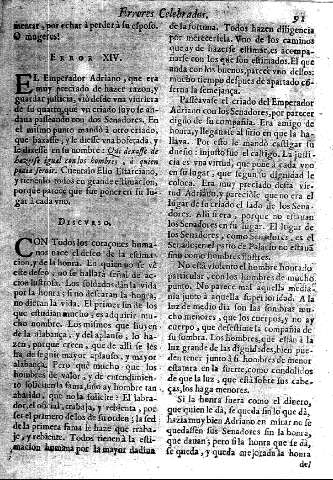 Errores Celebrados.
91
mentir, por echar à perder à su esposo.
O mugeres!
ERROR XIV.
EL Emperador Adriano, que era
muy preciado de hazer razon, y
guardar justicia, viò desde vna vidriera
de su quarto, que vn criado suyo se an-
daua passeando con dos Senadores. En
el mismo punto mandò à otro criado,
que baxasse, y le diesse vna bofetada, y
le dixesse en su nombre: Que dexasse de
hazerse igual con los hombres, à quien
podia servir. Cuentalo Elio Esparciano,
y tienenlo todos en grande estimacion,
porque parece que fue poner en su lu-
gar à cada vno.
DISCVRSO.
CON Todos los coraçones huma-
nos nace el deseo de la estima-
cion, y de la honra. En quien no se vè
este deseo, no se hallarà señal de ac-
cion ilustre. Los soldados dàn la vida
por la honra; si no desearan la honra,
no dieran la vida. El primer fin de los
que estudian mucho, es adquirir mu-
cho nombre. Los mismos que huyen
de la alabança, y del aplauso, lo ha-
zen, porque creen, que de alli se les
ha de seguir mayor aplauso, y mayor
alabança. Pero què mucho que los
hombres de valor, y de entendimien-
to soliciten la fama, si no ay hombre tan
abatido, que no la solicite? El labra-
dor, el oficial, trabaja, y rebienta, por
ser el primero de los de su orden; la sed
de la primera fama le haze que traba-
je, y rebiente. Todos tienen à la esti-
macion humana por la mayor dadiua
de la fortuna. Todos hazen diligencia
por merecersela. Vno de los caminos
que ay de hazerse estimar, es acompa-
ñarse con los que son estimados. El que
anda con los buenos, parece vno dellos:
mucho tiempo despues de apartado co-
serva la semejança.
Passeavase el criado del Emperador
Adriano con los Senadores, por parecer
digno de su compañia. Era amigo de
honra, y llegavase al sitio en que la ha-
llava. Por esto le mandò castigar su
dueño: injusto fue el castigo. La justi-
cia es vna virtud, que pone à cada vno
en su lugar, que segun su dignidad le
coloca. Era muy preciado desta vir-
tud Adriano, y pareciòle que no era el
lugar de su criado el lado de los Sena-
dores. Assi fuera, porque no estauan
los Senadores en su lugar. El lugar de
los Senadores, como Senadores, es el
Senado; en el patio de Palacio no estauã
sino como hombres ilustres.
No està violento el hombre honrado
particular, con los hombres de mucho
punto. No parece mal aquella media-
nia junto à aquella superioridad. A la
luz de medio dia son las sombras mu-
cho menores, que los cuerpos, y no ay
cuerpo, que desestime la compañia de
su sombra. Los hombres, que estàn à la
luz grande de las dignidades, bien pue-
den traer junto à sì hombres de menor
estatura en la suerte, como condolidos
de que la luz, que està sobre sus cabe-
ças, los haga menores.
Si la honra fuera como el dinero,
que quien le dà, se queda sin lo que dà,
hazia muy bien Adriano en mirar no se
quedassen sus Senadores sin la honra,
que dauan; pero si la honra que se dà,
se queda, y queda mejorada la honra
del